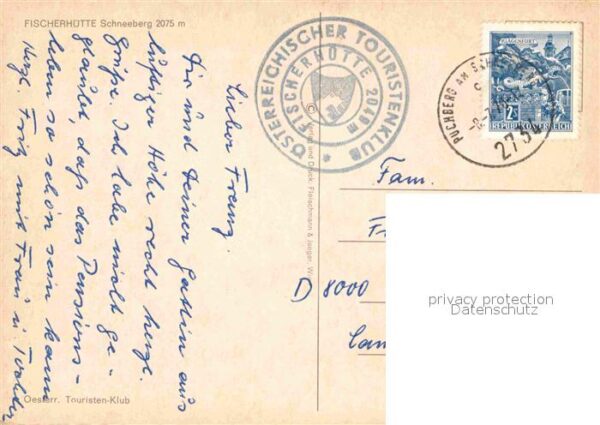 FISCHERHÜTTE Schneeberg 2075 m
Lieber Franz!
Dir und Deiner Gattin aus
luftiger Höhe recht herzl.
Grüße. Ich habe nicht ge-
glaubt, daß das Pensions-
leben so schön sein kann
Herzl. Fritz mit Frau u. Tochter
Oesterr. Touristen-Klub
ÖSTERREICHISCHER TOURISTENKLUB
FISCHERHÜTTE 2049m
Verlag und Druck: Fleischmann & Jaeger, W
KLAGENFURT
REPUBLIK ÖSTERREICH
PUCHBERG AM
2734
Fam.
F
D 8000
Lan
privacy protection
Datenschutz